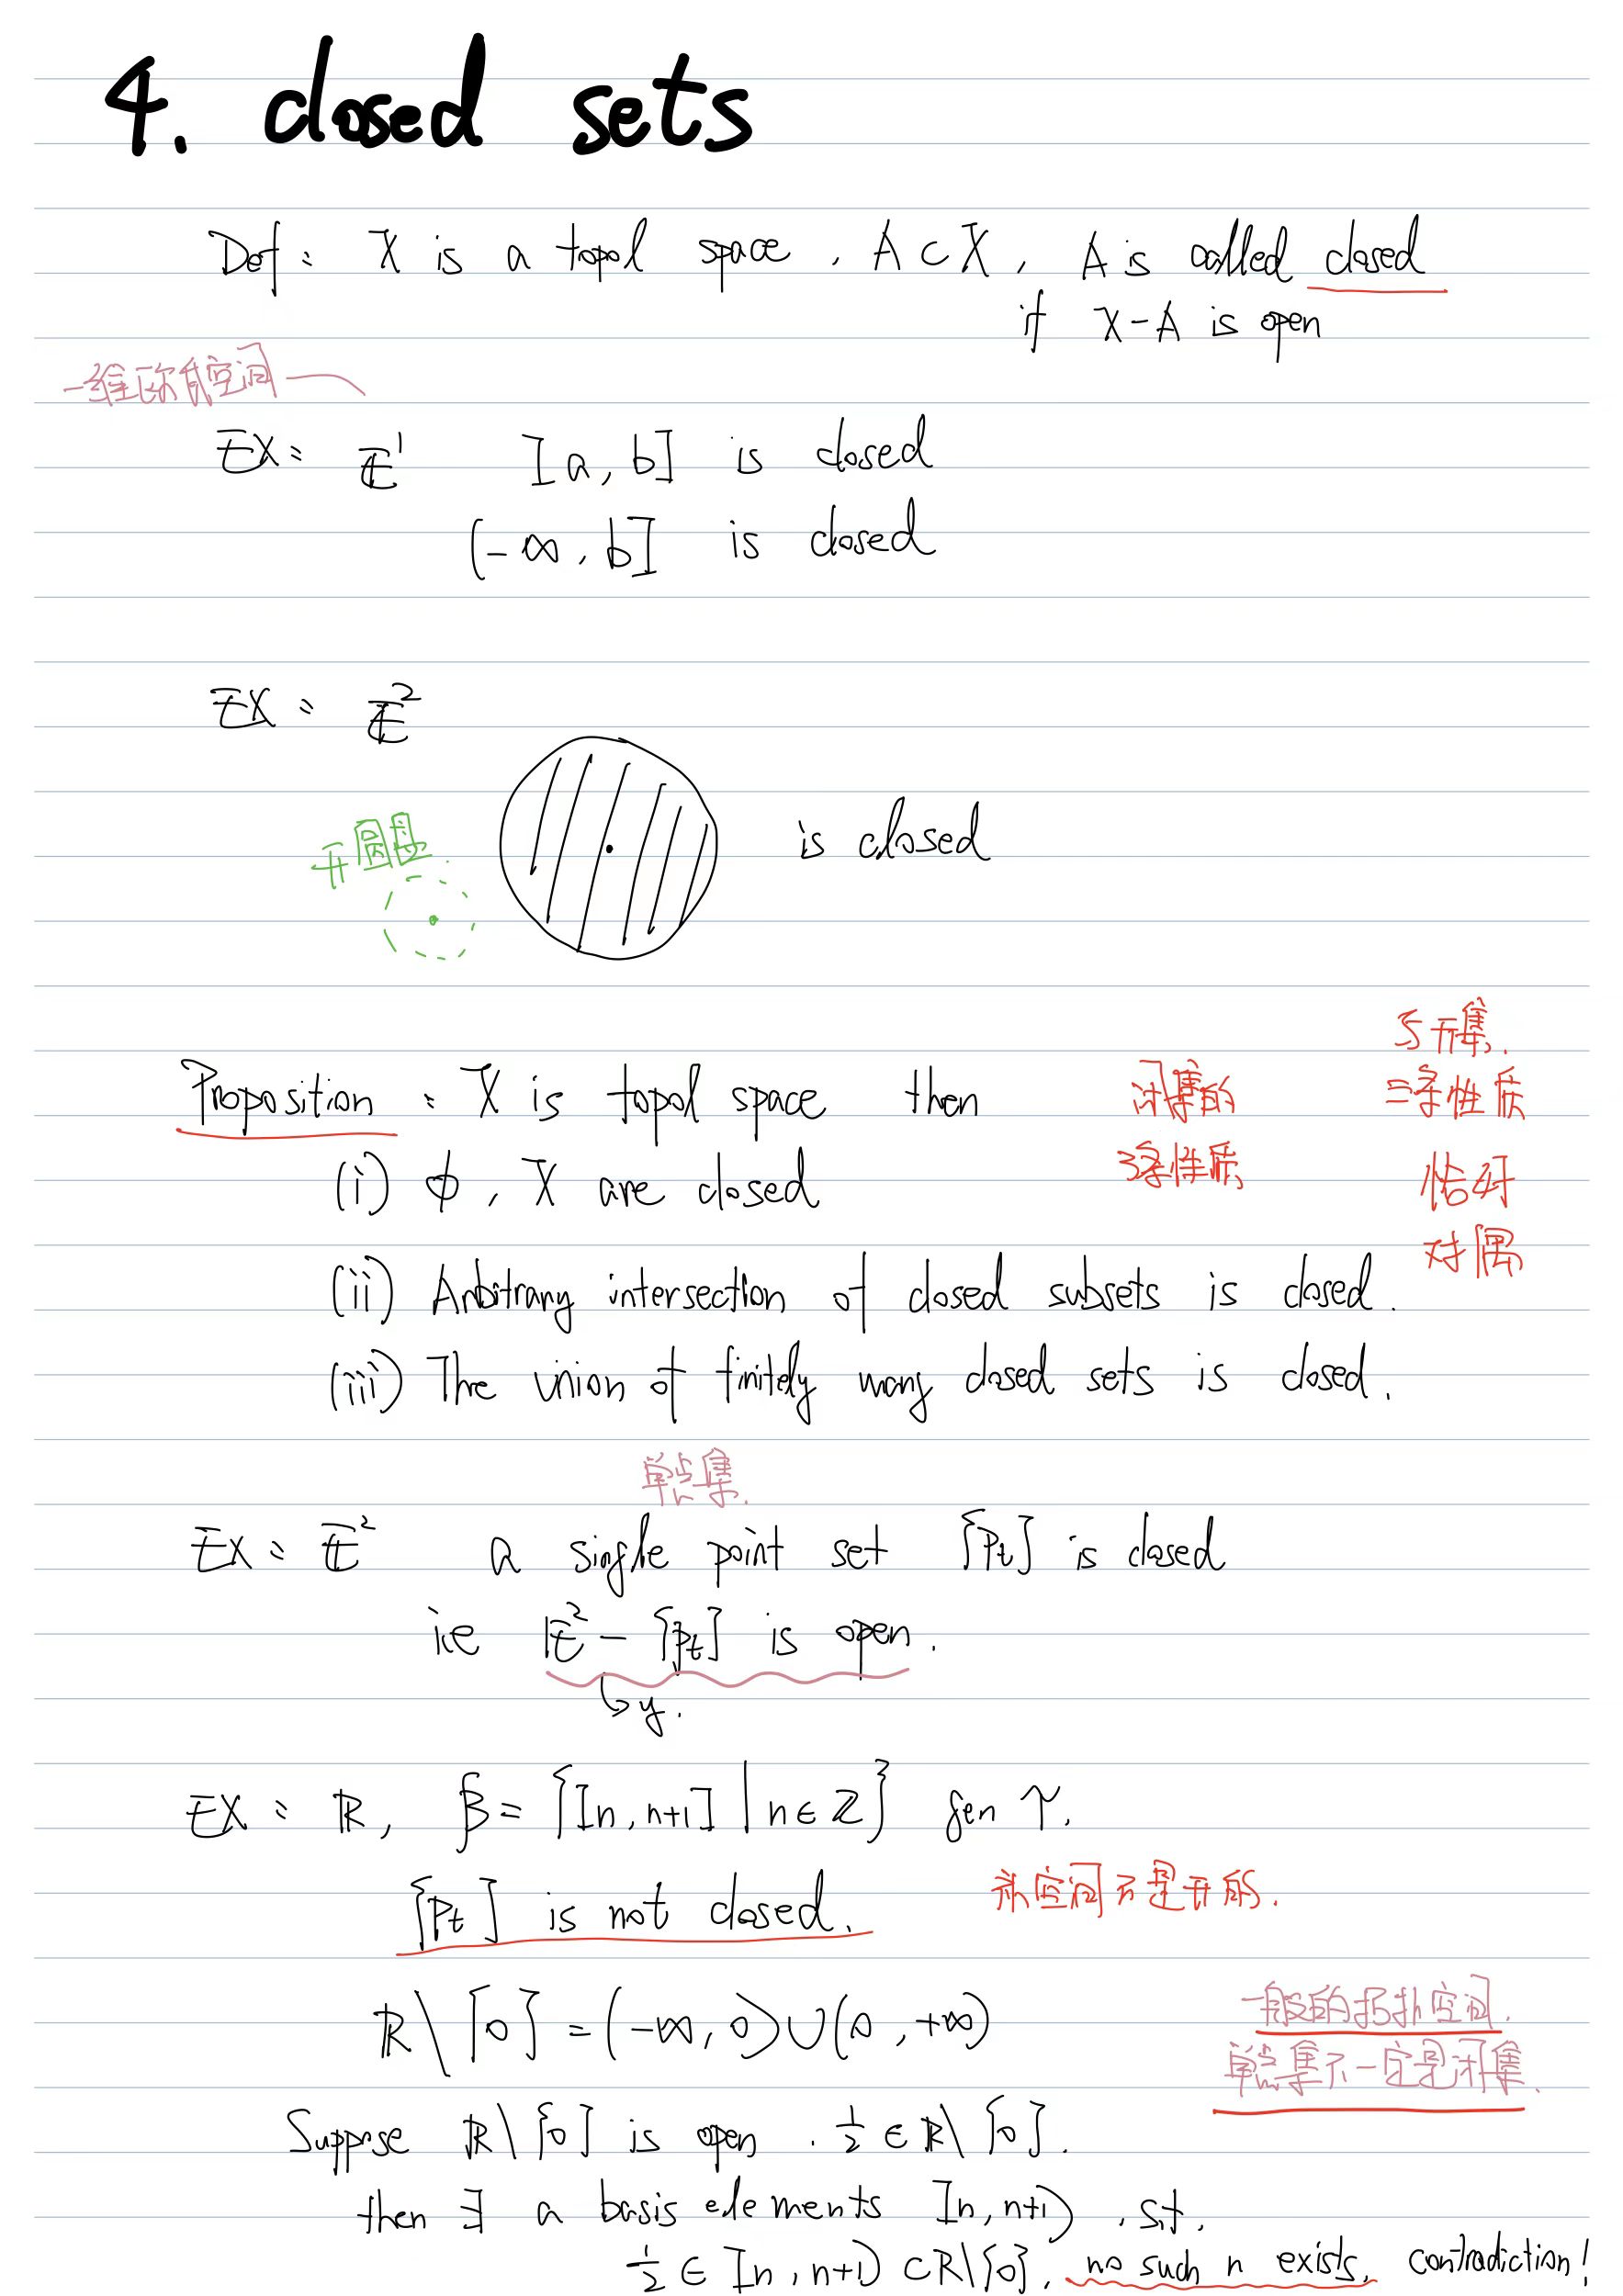 4. closed sets
Def: X is a topol space, A⊂X, A is called closed
if X-A is open
一维欧氏空间
EX: E¹ [a, b] is closed
(-∞, b] is closed
EX: E²
开圆盘.
is closed
与开集.
三条性质
恰好
对偶
闭集的
3条性质
Proposition: X is topol space then
(i) ϕ, X are closed
(ii) Arbitrary intersection of closed subsets is closed.
(iii) The union of finitely many closed sets is closed.
单点集.
EX: E² a single point set {Pt} is closed
i.e E² - {Pt} is open.
y.
EX: R, β = {[n, n+1] | n∈Z} gen τ.
{Pt} is not closed.
补空间不是开的.
R\{0} = (-∞, 0)∪(0, +∞)
一般的拓扑空间.
单点集不一定是闭集.
Suppose R\{0} is open. ½ ∈ R\{0}.
then ∃ a basis elements [n, n+1), s.t.
½ ∈ [n, n+1) ⊂ R\{0}, no such n exists, contradiction!